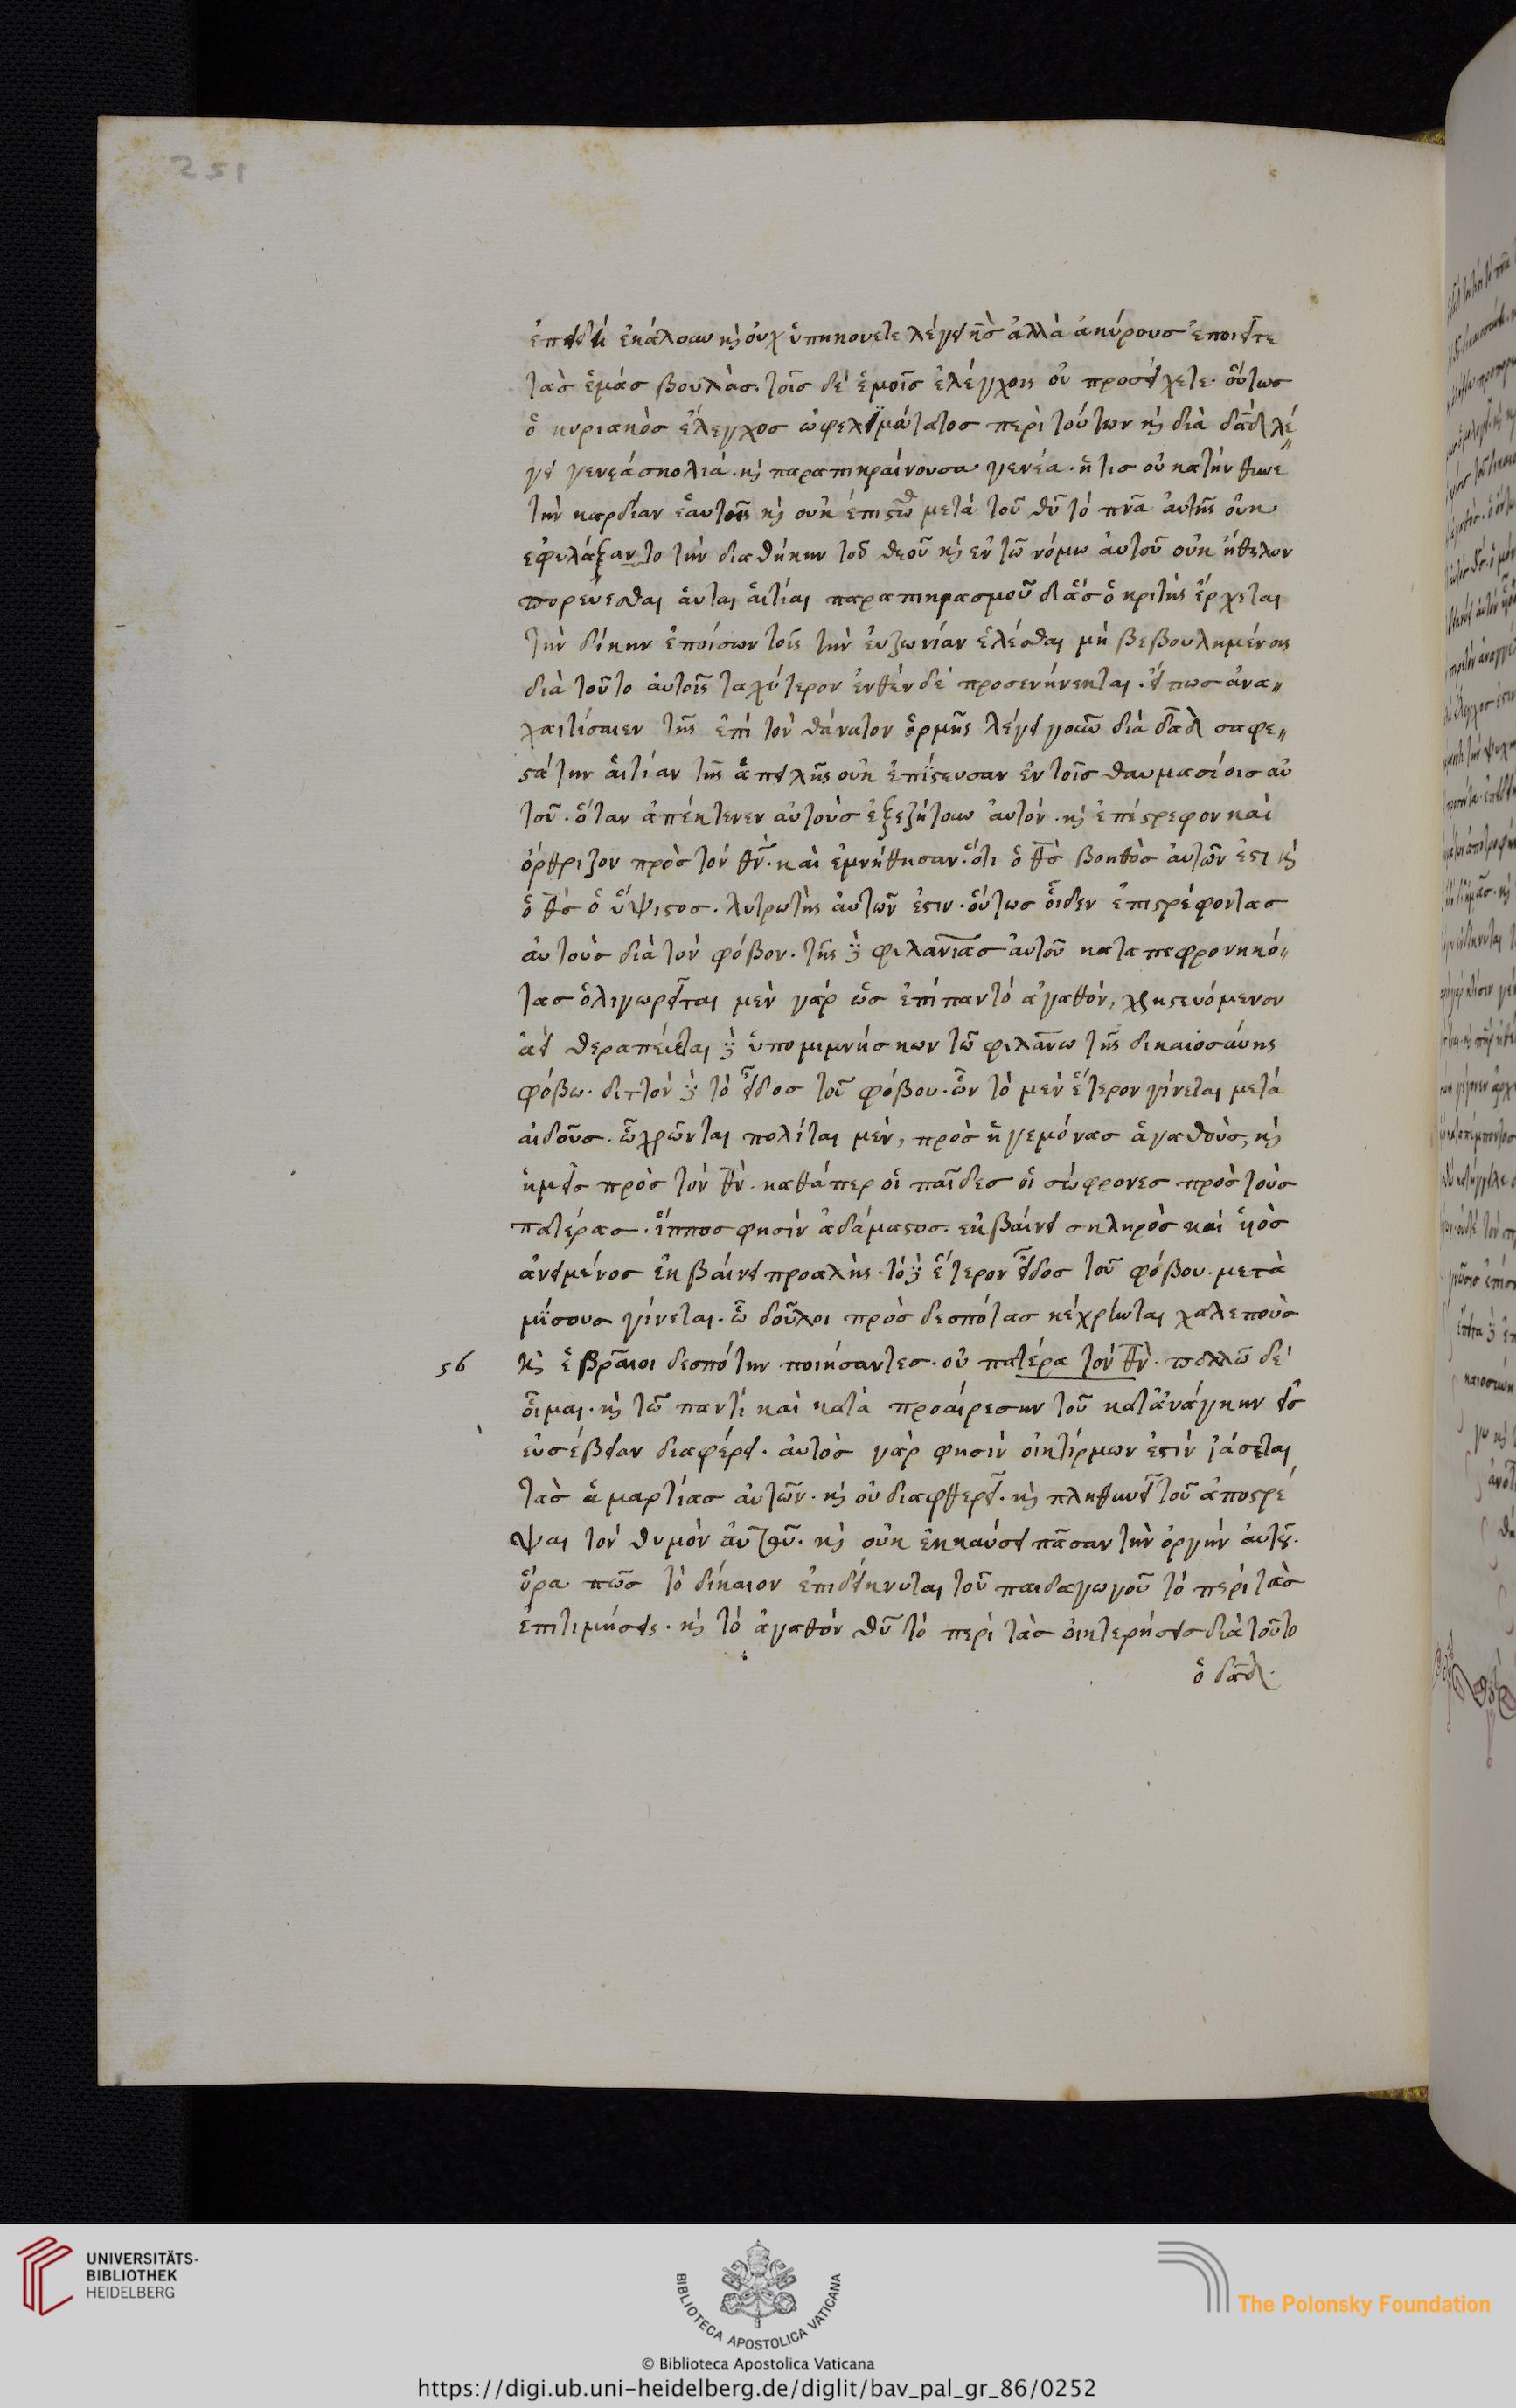 251
ἐπειδὴ ἐκάλουν καὶ οὐχ ὑπηκούετε λέγει κ̅ς̅ ἀλλὰ ἀκύρους ἐποιεῖτε
τὰς ἐμάς βουλὰς. τοῖς δὲ ἐμοῖς ἐλέγχοις οὐ προσείχετε. οὕτως
ὁ κυριακὸς ἔλεγχος ὠφελιμώτατος περὶ τούτων καὶ διὰ δα̅δ̅ λέ
γει γενεά σκολιά. καὶ παραπικραίνουσα γενεά. ἥτις οὐ κατηύθυνε
τὴν καρδίαν ἑαυτοῖς καὶ οὐκ ἐπιστώθη μετὰ τοῦ θ̅υ̅ τὸ π̅ν̅α̅ αὐτῆς οὐκ
ἐφυλάξαντο τὴν διαθήκην τοῦ θεοῦ καὶ ἐν τῶ νόμω αὐτοῦ οὐκ ἤθελον
πορεύεσθαι αὗται αἰτίαι παραπικρασμοῦ δι ἅς ὁ κριτὴς ἔρχεται
τὴν δίκην ἐποίσων τοῖς τὴν εὐζωνίαν ἑλέσθαι μὴ βεβουλημένοις
διὰ τοῦτο αὐτοῖς ταχύτερον ἐνθένδε προσενήνεκται. εἴ πως ἀνα〃
χαιτίσαιεν τῆς ἐπὶ τὸν θάνατον ὁρμῆς λέγει γοῦν διὰ δα̅δ̅ σαφε〃
στάτην αἰτίαν τῆς ἀπειλῆς οὐκ ἐπίστευσαν ἐν τοῖς θαυμασίοις αὐ
τοῦ. ὅταν ἀπέκτενεν αὐτοὺς ἐξεζήτουν αὐτόν. καὶ ἐπέστρεφον καὶ
ὄρθριζον πρὸς τὸν θ̅ν̅. καὶ ἐμνήθησαν. ὅτι ὁ θ̅ς̅ βοηθὸς αὐτῶν ἐστι καὶ
ὁ θ̅ς̅ ὁ ὕψιστος. λυτρωτὴς αὐτῶν ἐστιν. οὕτως οἶδεν ἐπιστρέφοντας
αὐτοὺς διὰ τὸν φόβον. τῆς δὲ φιλα̅νιας αὐτοῦ καταπεφρονηκό〃
τας ὀλιγωρεῖται μὲν γάρ ὡς ἐπίπαν τὸ ἀγαθόν, χρηστευόμενον
ἀεὶ θεραπεύεται δὲ ὑπομιμνήσκων τῶ φιλα̅νω τῆς δικαιοσύνης
φόβω. διττὸν δὲ τὸ εἶδος τοῦ φόβου. ὧν τὸ μὲν ἕτερον γίνεται μετὰ
αἰδοῦς. ὧ χρῶνται πολῖται μὲν, πρὸς ἡγεμόνας ἀγαθοὺς, καὶ
ἡμεῖς πρὸς τὸν θ̅ν̅. καθάπερ οἱ παῖδες οἱ σώφρονες πρὸς τοὺς
πατέρας. ἵππος φησὶν ἀδάμαστος. ἐκβαίνει σκληρὸς καὶ υἱὸς
ἀνειμένος ἐκβαίνει προαλής. τὸ δὲ ἕτερον εἶδος τοῦ φόβου. μετὰ
μίσους γίνεται. ὧ δοῦλοι πρὸς δεσπότας κέχρηνται χαλεποὺς
56 καὶ ἑβραῖοι δεσπότην ποιήσαντες. οὐ πατέρα τὸν θ̅ν̅. πολλῶ δὲ
οἶμαι. καὶ τῶ παντὶ καὶ κατὰ προαίρεσιν τοῦ κατ ἀνάγκην εἰς
εὐσέβειαν διαφέρει. αὐτὸς γάρ φησιν οἰκτίρμων ἐστίν ἰάσεται
τὰς ἁμαρτίας αὐτῶν. καὶ οὐ διαφθερεῖ. καὶ πληθυνεῖ τοῦ ἀποστρέ
ψαι τὸν θυμὸν αὐτοῦ. καὶ οὐκ ἐκκαύσει πᾶσαν τὴν ὀργὴν αὐτοῦ.
ὅρα πῶς τὸ δίκαιον ἐπιδείκνυται τοῦ παιδαγωγοῦ τὸ περὶ τὰς
ἐπιτιμήσεις. καὶ τὸ ἀγαθὸν θ̅υ̅ τὸ περὶ τὰς οἰκτερήσεις διὰ τοῦτο
ὁ δα̅δ̅.
UNIVERSITÄTS-
BIBLIOTHEK
HEIDELBERG
BIBLIOTECA APOSTOLICA VATICANA
The Polonsky Foundation
© Biblioteca Apostolica Vaticana
https://digi.ub.uni-heidelberg.de/diglit/bav_pal_gr_86/0252